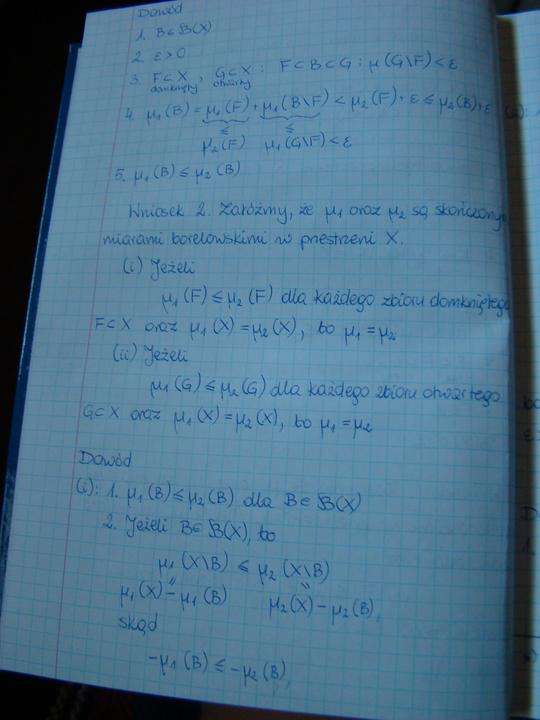 Dowód
1. B∈𝔅(X)
2. ε>0
3. F⊂X, G⊂X : F⊂B⊂G : μ(G\F)<ε
domknięty otwarty
4. μ₁(B) = μ₁(F) + μ₁(B\F) < μ₂(F) + ε ≤ μ₂(B) + ε
≤ ≤
μ₂(F) μ₁(G\F)<ε
5. μ₁(B) ≤ μ₂(B)
Wniosek 2. Załóżmy, że μ₁ oraz μ₂ są skończonymi
miarami borelowskimi w przestrzeni X.
(i) Jeżeli
μ₁(F) ≤ μ₂(F) dla każdego zbioru domkniętego
F⊂X oraz μ₁(X) = μ₂(X), to μ₁ = μ₂
(ii) Jeżeli
μ₁(G) ≤ μ₂(G) dla każdego zbioru otwartego
G⊂X oraz μ₁(X) = μ₂(X), to μ₁ = μ₂
Dowód
(i): 1. μ₁(B) ≤ μ₂(B) dla B∈𝔅(X)
2. Jeżeli B∈𝔅(X), to
μ₁(X\B) ≤ μ₂(X\B)
= =
μ₁(X) − μ₁(B) μ₂(X) − μ₂(B),
skąd
−μ₁(B) ≤ −μ₂(B),